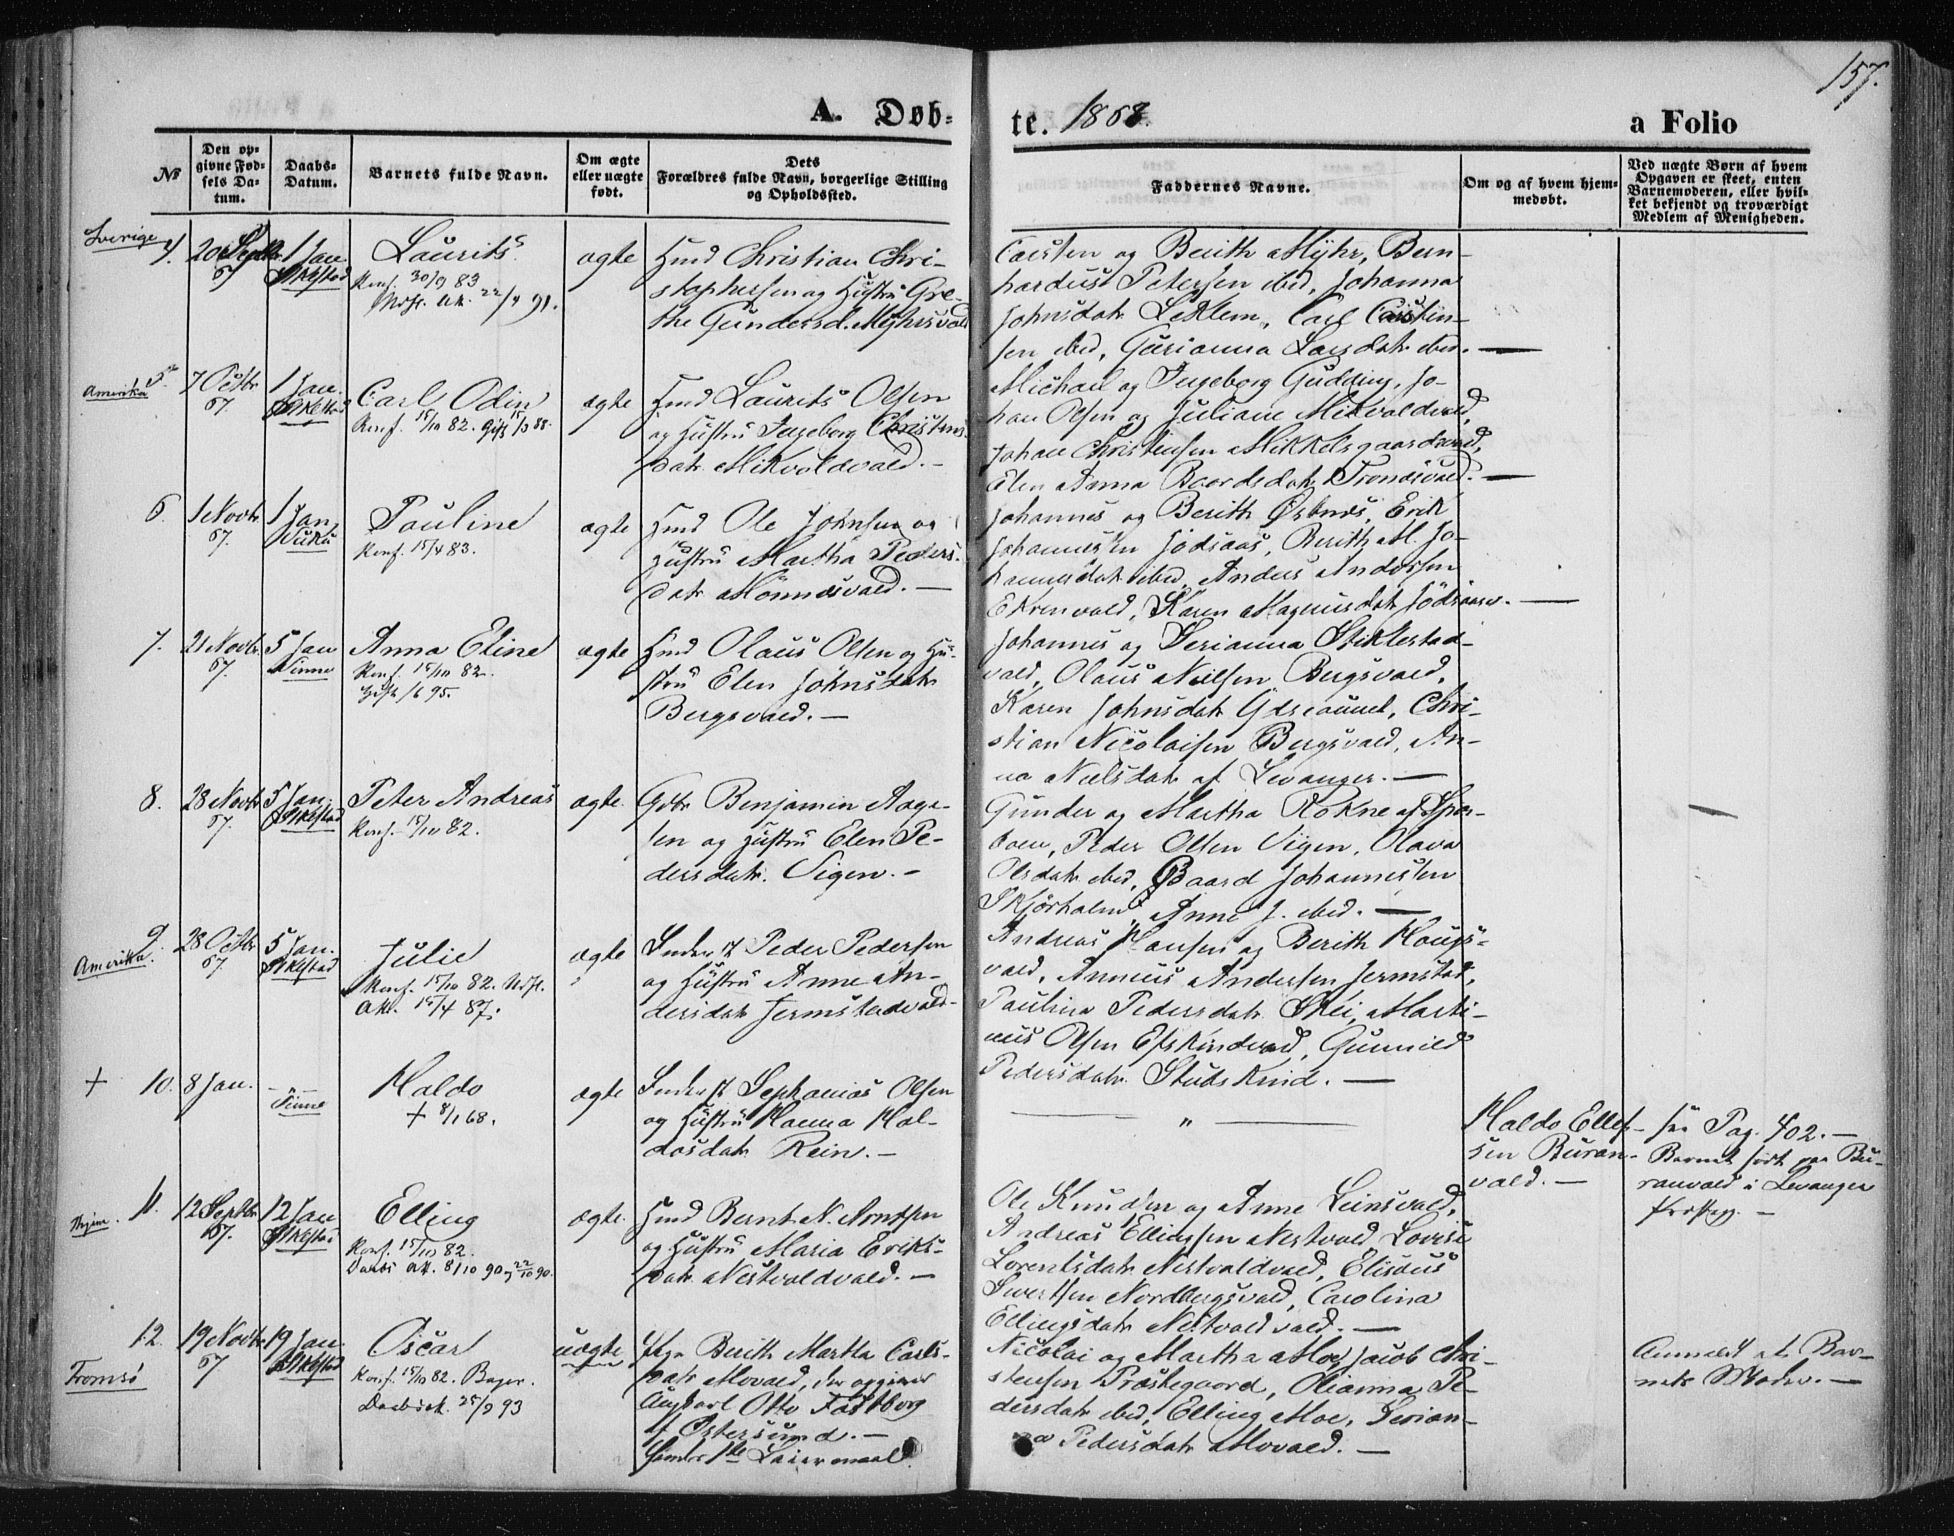 157.
A. Døb-
te. 1868.
a Folio
No
Den op-
givne Fød-
sels Da-
tum.
Daabs-
Datum.
Barnets fulde Navn.
Om ægte
eller uægte
født.
Dets
Forældres fulde Navn, borgerlige Stilling
og Opholdssted.
Faddernes Navne.
Om og af hvem hjem-
medøbt.
Ved uægte Børn af hvem
Opgaven er skeet, enten
Barnemoderen, eller hvil-
ket bekjendt og troværdigt
Medlem af Menigheden.
Sverige
4. 20 Septbr 67 1 Jan Stiklestad
Laurits
Konf. 30/9 83
Udfl. Att. 22/4 91.
ægte
Hmd Christian Chri-
stophersen og Hustru Gre-
the Gundersd. Myhrsvald
Carsten og Berith Myhr, Bern-
hardus Petersen ibid, Johanna
Johnsdatr Leklem, Carl Carsten-
sen ibid, Gurianna Larsdatr ibid.
Amerika
5. 7 Octbr 67. 1 Jan. Stiklestad
Carl Odin
Konf. 15/10 82. Gift 15/3 88.
ægte
Hmd Laurits Olsen
og Hustru Ingeborg Christens
datr Mikvoldvald.
Michael og Ingeborg Gudding, Jo-
han Olsen og Juliane Mikvoldvald,
Johan Christensen Mikkelsgaardsvald,
Elen Anna Baardsdatr Tronesvald.
6. 1 Novbr 67. 1 Jan. Vuku
Pauline
Konf. 15/4 83.
ægte
Hmd Ole Johnsen og
Hustru Martha Peders-
datr Mönnesvald.
Johannes og Berith Østnes, Erik
Johannessen Jodsaas, Berith M. Jo-
hannesdatr ibid, Anders Andersen
Ekrenvald, Karen Magnusdatr Jödsaasv.
7. 21 Novbr 67. 5 Jan Vinne
Anna Eline
Konf. 15/10 82.
Gift /6 95.
ægte
Hmd Olaus Olsen og Hu-
stru Elen Johnsdatr
Bergsvald.
Johannes og Serianna Stiklestad-
vald, Olaus Nielsen Bergsvald,
Karen Johnsdatr, Chri-
stian Nicolaisen Bergsvald, An-
na Nielsdatr af Levanger.
8. 28 Novbr 67. 5 Jan. Stiklestad
Peter Andreas
Konf. 15/10 82.
ægte
Gdbr Benjamin Aage-
sen og Hustru Elen Pe-
dersdatr. Vigen.
Gunder og Martha Rokne af Spar-
boen, Peder Olsen Vigen, Olava
Olsdatr ibid, Baard Johannessen
Skjörholm, Anne J. ibid.
Amerika.
9. 28 Octbr 67. 5 Jan. Stiklestad
Julie
Konf. 15/10 82. Udfl.
Att. 15/4 87.
ægte
Inderst Peder Pedersen
og Hustru Anne An-
dersdatr Jermstadvald.
Andreas Hansen og Berith Hougs-
vald, Anneus Andersen Jermstad,
Paulina Pedersdatr Skei, Marti-
nus Olsen Eklskindvald, Gunnild
Pedersdatr. Studskind.
+ 10. 8 Jan. " Vinne
Haldo
+ 8/1 68.
ægte
Inderst Sephanias Olsen
og Hustru Hanna Hal-
dosdatr Rein.
"
Haldo Ellef-
sen Buran-
vald.
see Pag. 402.
Barnet født paa Bu-
ranvald i Levanger
Præstegj.
Hjem.
11. 12 Septbr 67. 12 Jan Stiklestad
Elling
Konf. 15/10 82.
Daabs Att. 8/10 90 og 22/10 90.
ægte.
Hmd Bernt N. Arntsen
og Hustru Maria Eriks-
datr Nestvoldvald.
Ole Knudsen og Anne Leinsvald,
Andreas Ellingsen Nestvold, Lovise
Lorentsdatr Nestvoldvald, Eliseus
Sivertsen Nordbergsvald, Carolina
Ellingsdatr Nestvoldvald.
Tromsö
12. 19 Novbr 67 19 Jan Stiklestad
Oscar
Konf. 15/10 82. Bager.
Daabsatt. 25/9 93
uægte
Pige Berith Martha Carls-
datr Movald, der opgiver
Ungkarl Otto Fastborg
af Østersund.
Leiermaal.
Nicolai og Martha Moe, Jacob Chri-
stensen Præstegaard, Olianna Pe-
dersdatr ibid, Elling Moe, Serian-
na Pedersdatr Movald.
Anmeldt af Bar-
nets Moder.